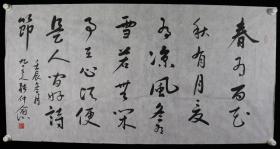 春有百花
秋有月夏
有凉風冬有
雪若無闲
事在心头便
是人间好時
節
壬辰冬月